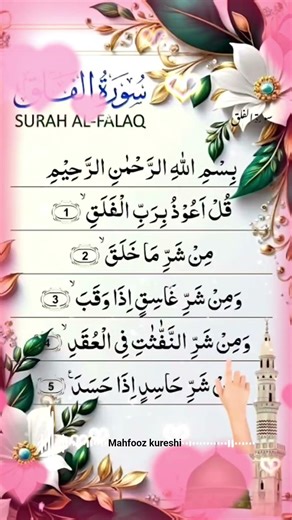 سُوْرَةُ الْفَلَقِ
SURAH AL-FALAQ
سورة الفلق
بِسْمِ اللهِ الرَّحْمٰنِ الرَّحِيْمِ
قُلْ اَعُوْذُ بِرَبِّ الْفَلَقِ ۙ 1
مِنْ شَرِّ مَا خَلَقَ ۙ 2
وَمِنْ شَرِّ غَاسِقٍ اِذَا وَقَبَ ۙ 3
وَمِنْ شَرِّ النَّفّٰثٰتِ فِى الْعُقَدِ ۙ 4
شَرِّ حَاسِدٍ اِذَا حَسَدَ 5
Mahfooz kureshi